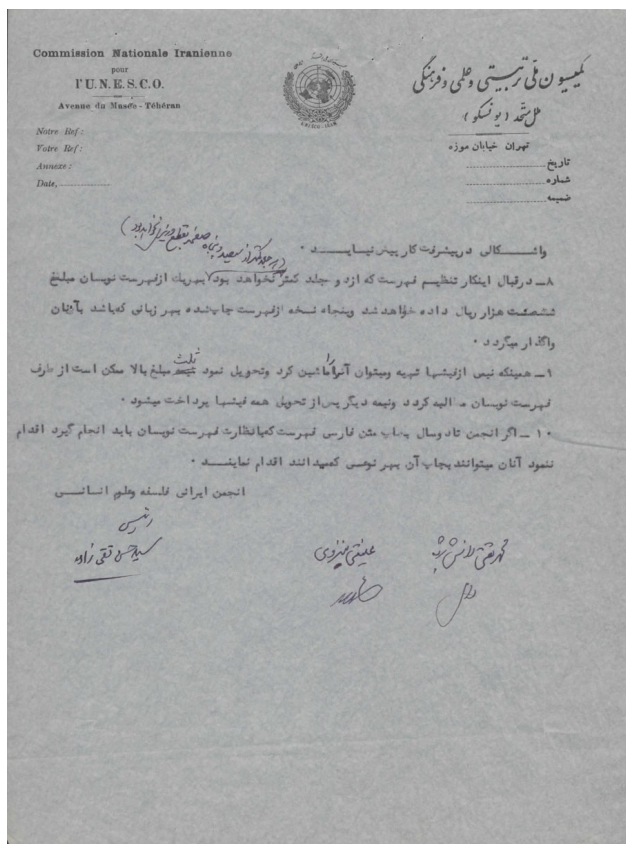 Commission Nationale Iranienne
pour
l'U.N.E.S.C.O.
Avenue du Musée - Téhéran
Notre Ref:
Votre Ref:
Annexe:
Date,
کمیسیون ملی تربیتی و علمی و فرهنگی
ملل متحد (یونسکو)
تهران خیابان موزه
تاریخ
شماره
ضمیمه
(هر جلد کمتر از سیصد و پنجاه صفحه بقطع وزیری نخواهد بود)
واشکالی در پیشرفت کار پیش نیاید ۰
۸ــ در قبال اینکار تنظیم فهرست که از دو جلد کمتر نخواهد بود بهریك از فهرست نویسان مبلغ
شصت هزار ریال داده خواهد شد وپنجاه نسخه از فهرست چاپ شده بهر زبانی که باشد بآنان
واگذار میگردد ۰
۹ــ همینکه نیمی از فیشها تهیه ومیتوان آنرا ماشین کرد وتحویل نمود ثلث مبلغ بالا ممکن است از طرف
فهرست نویسان مطالبه گردد ونیمه دیگر پس از تحویل همه فیشها پرداخت میشود ۰
۱۰ــ اگر انجمن تا دو سال بچاپ متن فارسی فهرست که با نظارت فهرست نویسان باید انجام گیرد اقدام
ننمود آنان میتوانند بچاپ آن بهر نوعی که میدانند اقدام نمایند ۰
انجمن ایرانی فلسفه وعلوم انسانی
رئیس
سید حسن تقی زاده
علینقی منزوی
محمد تقی دانش پژوه